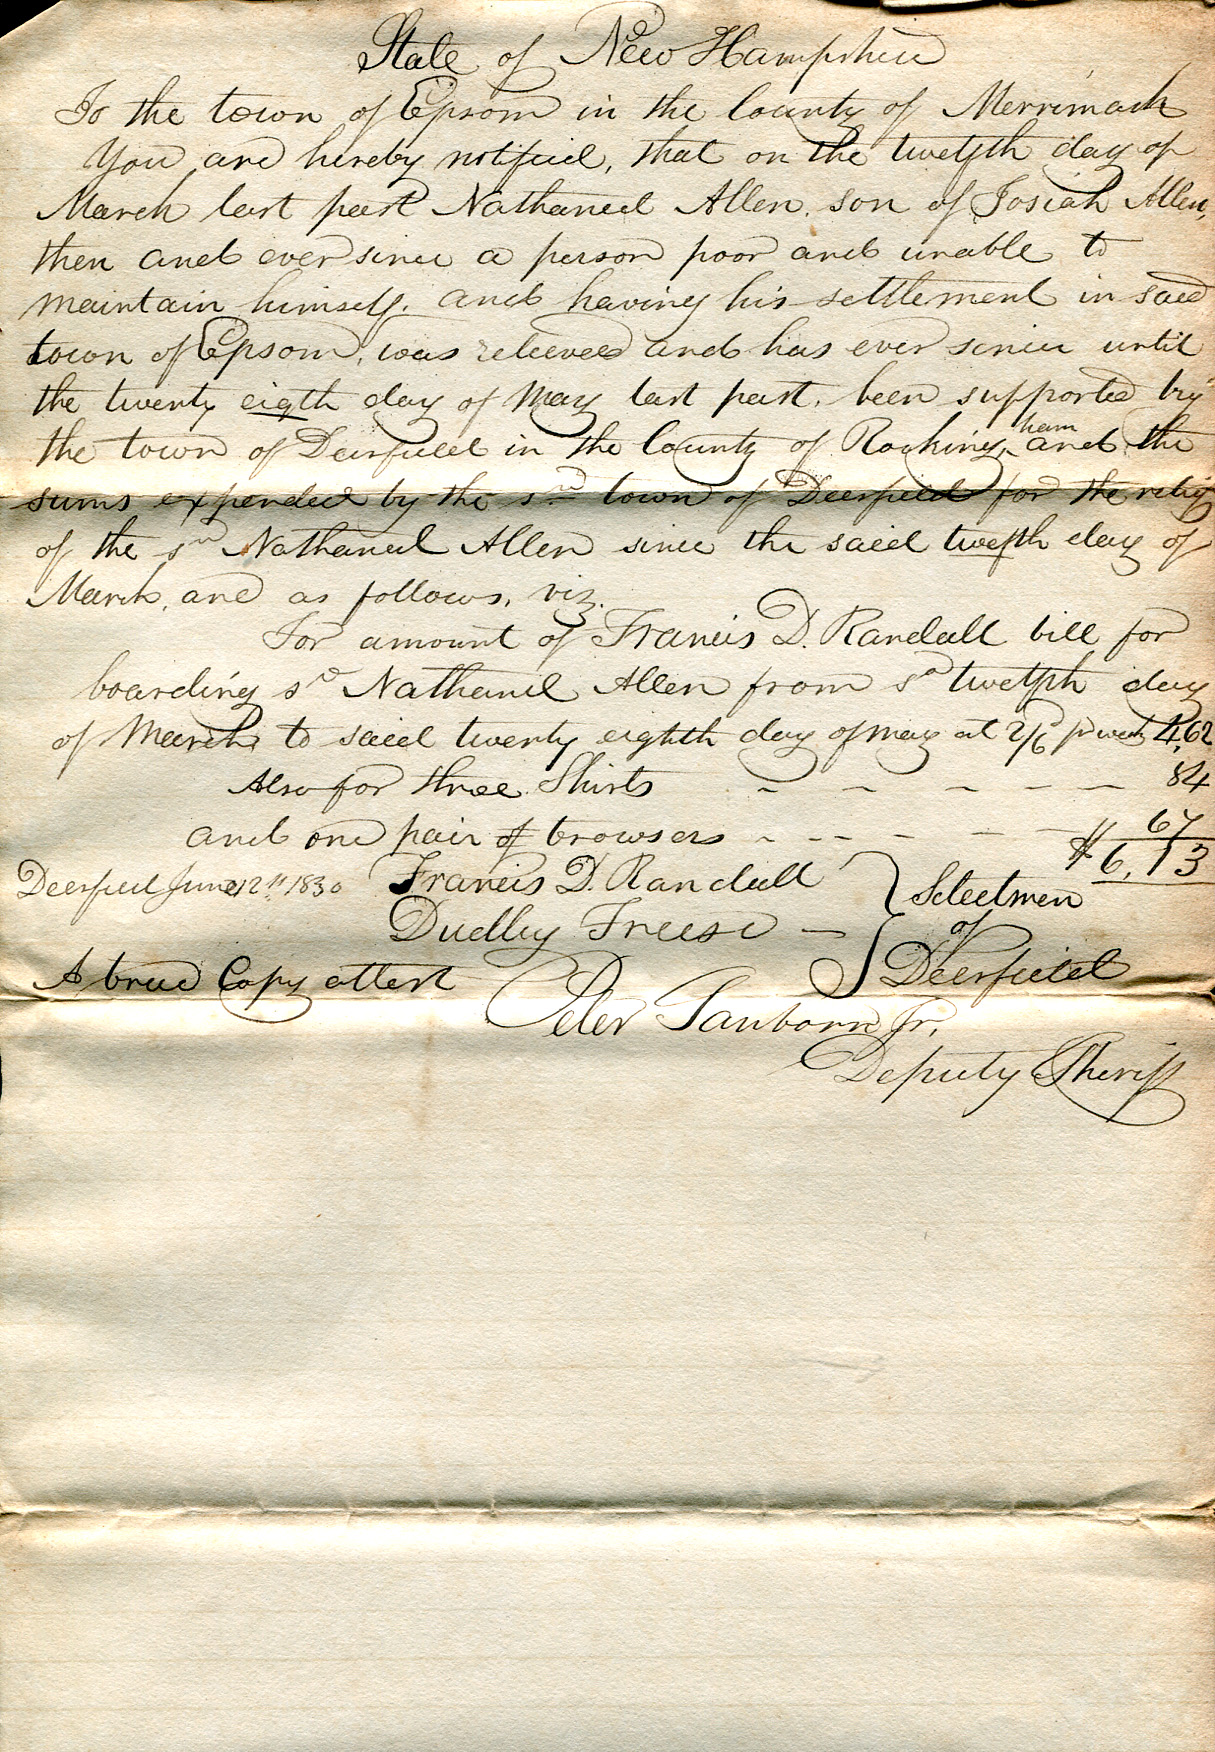 State of New Hampshire
To the town of Epsom in the County of Merrimack
You are hereby notified, that on the twelfth day of
March last past Nathaniel Allen, son of Josiah Allen,
then and ever since a person poor and unable to
maintain himself. and having his settlement in said
town of Epsom, was relieved and has ever since until
the twenty eigth day of May last past, been supported by
the town of Deerfield in the County of Rockingham and the
sums expended by the sd town of Deerfield for the relief
of the sd Nathaniel Allen since the said twefth day of
March, are as follows, viz.
For amount of Francis D. Randall bill for
boarding sd Nathaniel Allen from sd twelfth day
of March to said twenty eighth day of may at 2/6 pr week 4,62
Also for three Shirts - - - - - 84
and one pair of trowsers - - - - - 67
$6,13
Deerfield June 12th 1830 Francis D. Randall } Selectmen
Dudley Freese - } of
Deerfield
A true Copy attest
Peter Sanborn Jr.
Deputy Sheriff